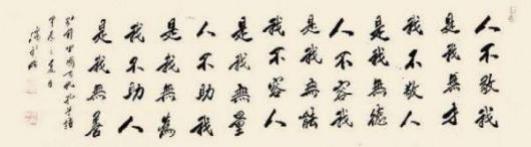 人不敬我
是我無才
我不敬人
是我無德
人不容我
是我無能
我不容人
是我無量
人不助我
是我無為
我不助人
是我無善